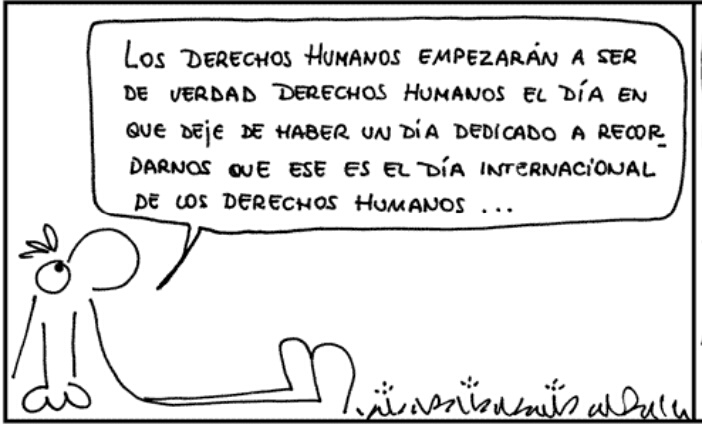 Los DERECHOS HUMANOS EMPEZARÁN A SER
DE VERDAD DERECHOS HUMANOS EL DÍA EN
QUE DEjE DE HABER UN DÍA DEDICADO A RECOR-
DARNOS QUE ESE ES EL DÍA INTERNACIONAL
DE LOS DERECHOS HUMANOS ...